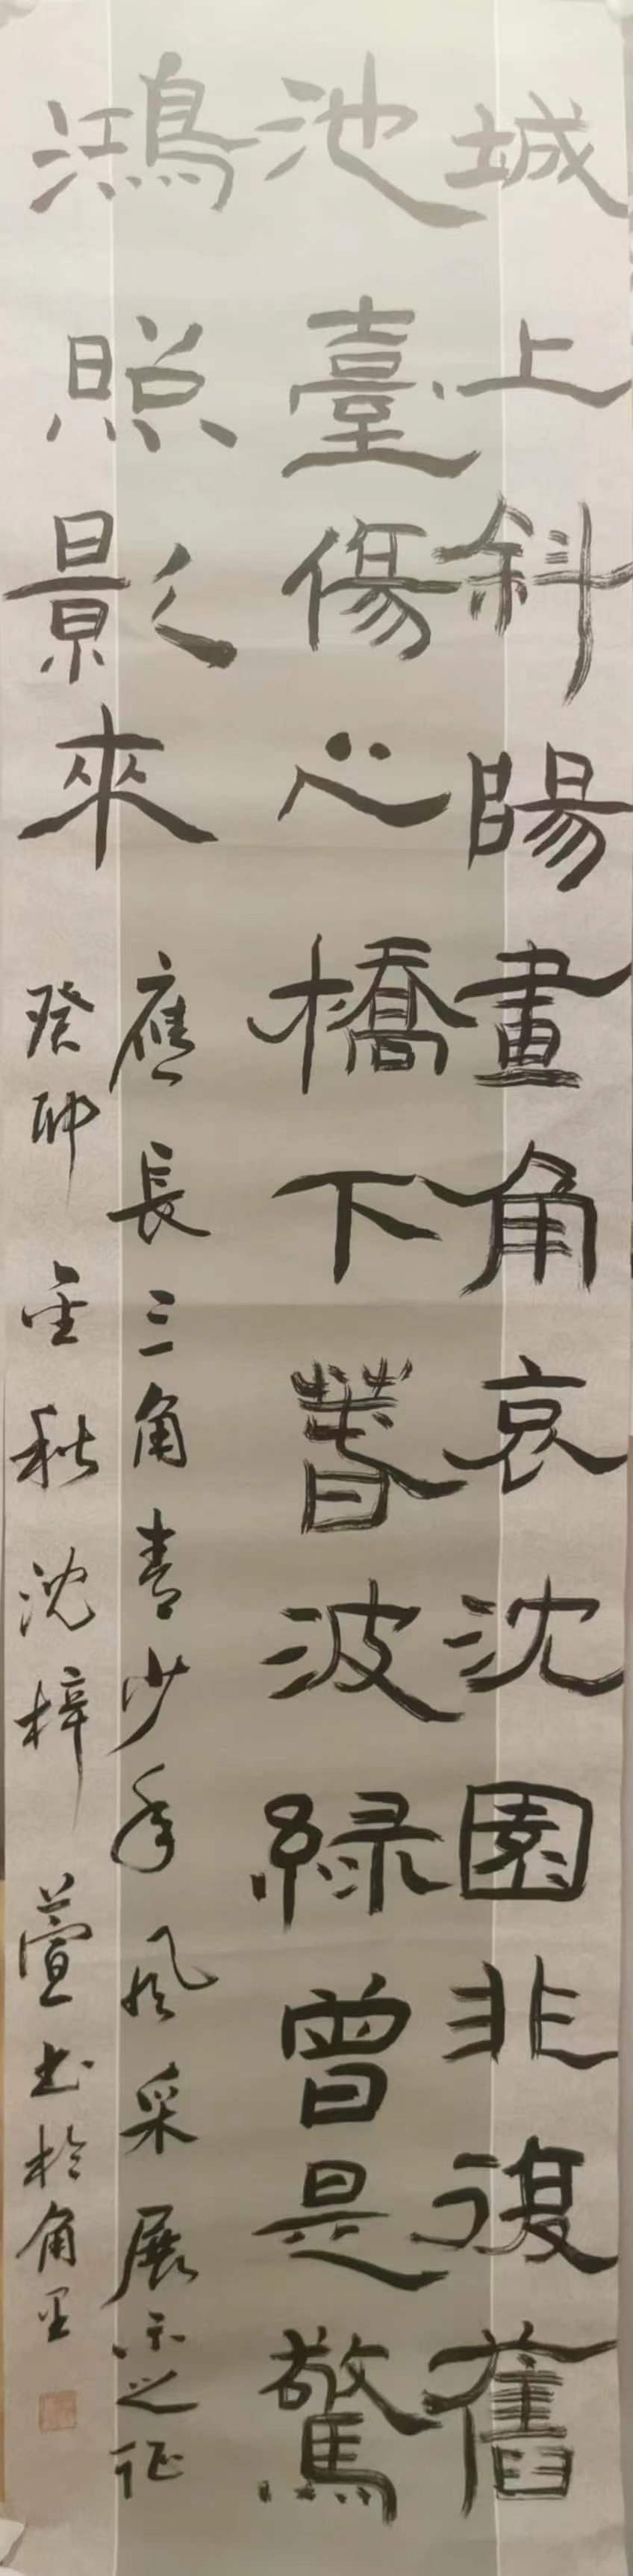 城上斜陽畫角哀沈園非復舊
池臺傷心橋下春波綠曾是驚
鴻照影來
應長三角青少年風采展示之征
癸卯金秋沈梓萱書於角里